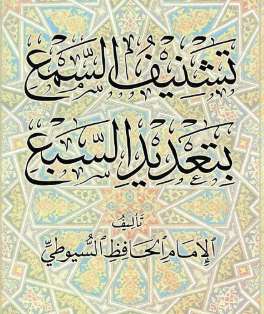 تَشْنِيفُ السَّمْعِ
بِتَعْدِيدِ السَّبْعِ
تأليف
الإمَام الحَافظ السُّيُوطيّ